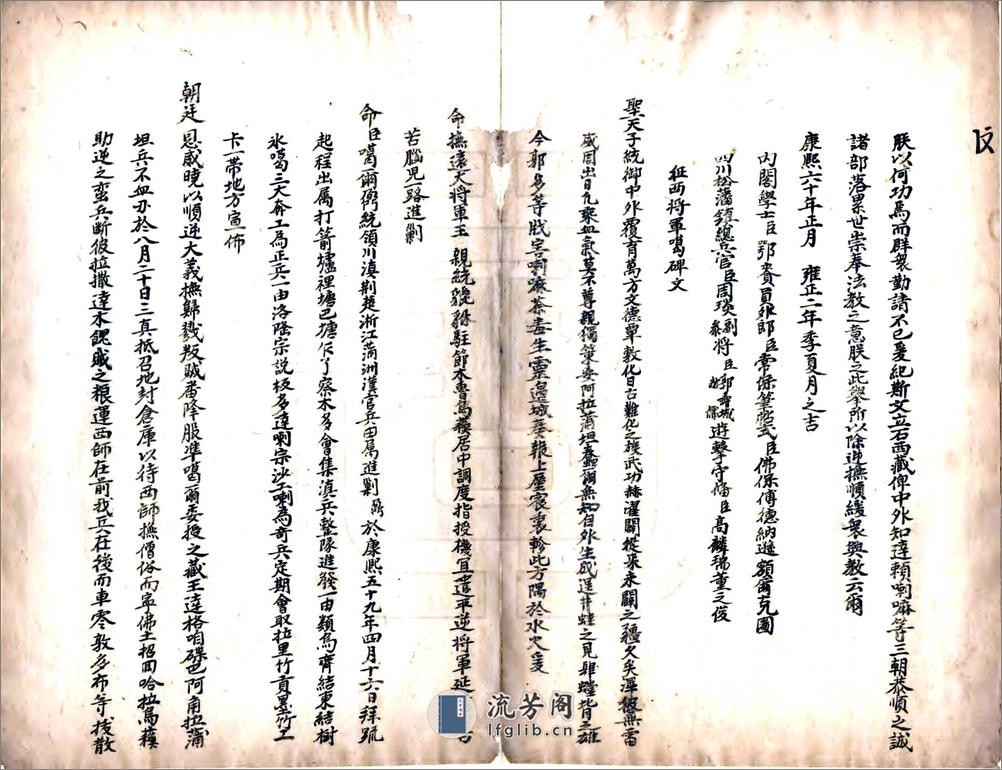 朕以何功焉而群衆勤請不已爰紀斯文立石西藏俾中外知達賴喇嘛等三朝恭順之誠
諸部落累世崇奉法教之意朕之此舉所以除逆撫順綏衆興教云爾
康熙六十年正月 雍正二年季夏月之吉
內閣學士臣鄂賚員外郎臣常保筆帖式臣佛保傅德納遜額爾克圖
四川松潘鎮總兵官臣周瑛副將臣 遊擊守俻臣高麟瑞董之俊
征西將軍噶碑文
聖天子統御中外覆育萬方文德覃敷化自古難化之族武功赫濯闢從來未闢之疆久矣渾彼無雷
盛周出日凡秉血氣莫不尊親獨策妄阿拉蒲坦蠢爾無知自外生成逞井蛙之見肆螳背之雄
今郭多等戕害喇嘛荼毒生靈邊城募報上廑宸衷軫此方隅於水火爰
命撫遠大將軍王 親統貔貅駐節木魯烏蘇居中調度指授機宜遣平逆將軍延
苦腦兒一路進剿
命臣噶爾弼統領川滇荆楚浙江滿洲漢官兵由 進剿 於康熙五十九年四月十六日拜疏
起程出属打箭爐裡塘巴塘乍了察木多會集滇兵整隊進發一由類烏齊結東結樹
氷噶三大奔工為正兵一由洛隆宗説板多達喇宗沙工喇為奇兵定期會取拉里竹貢墨竹工
卡一帶地方宣佈
朝廷恩威曉以順逆大義撫歸戮叛賊番降服準噶爾委授之藏王達格咱碟巴阿甭拉蒲
坦兵不血刃於八月二十日三真抵召地封倉庫以待西師撫僧俗而寧佛土招囬哈拉烏蘇
助逆之蛮兵断彼拉撒達木餽賊之粮運西師在前我兵在後而車零敦多布等拨散
流芳阁
lfglib.cn